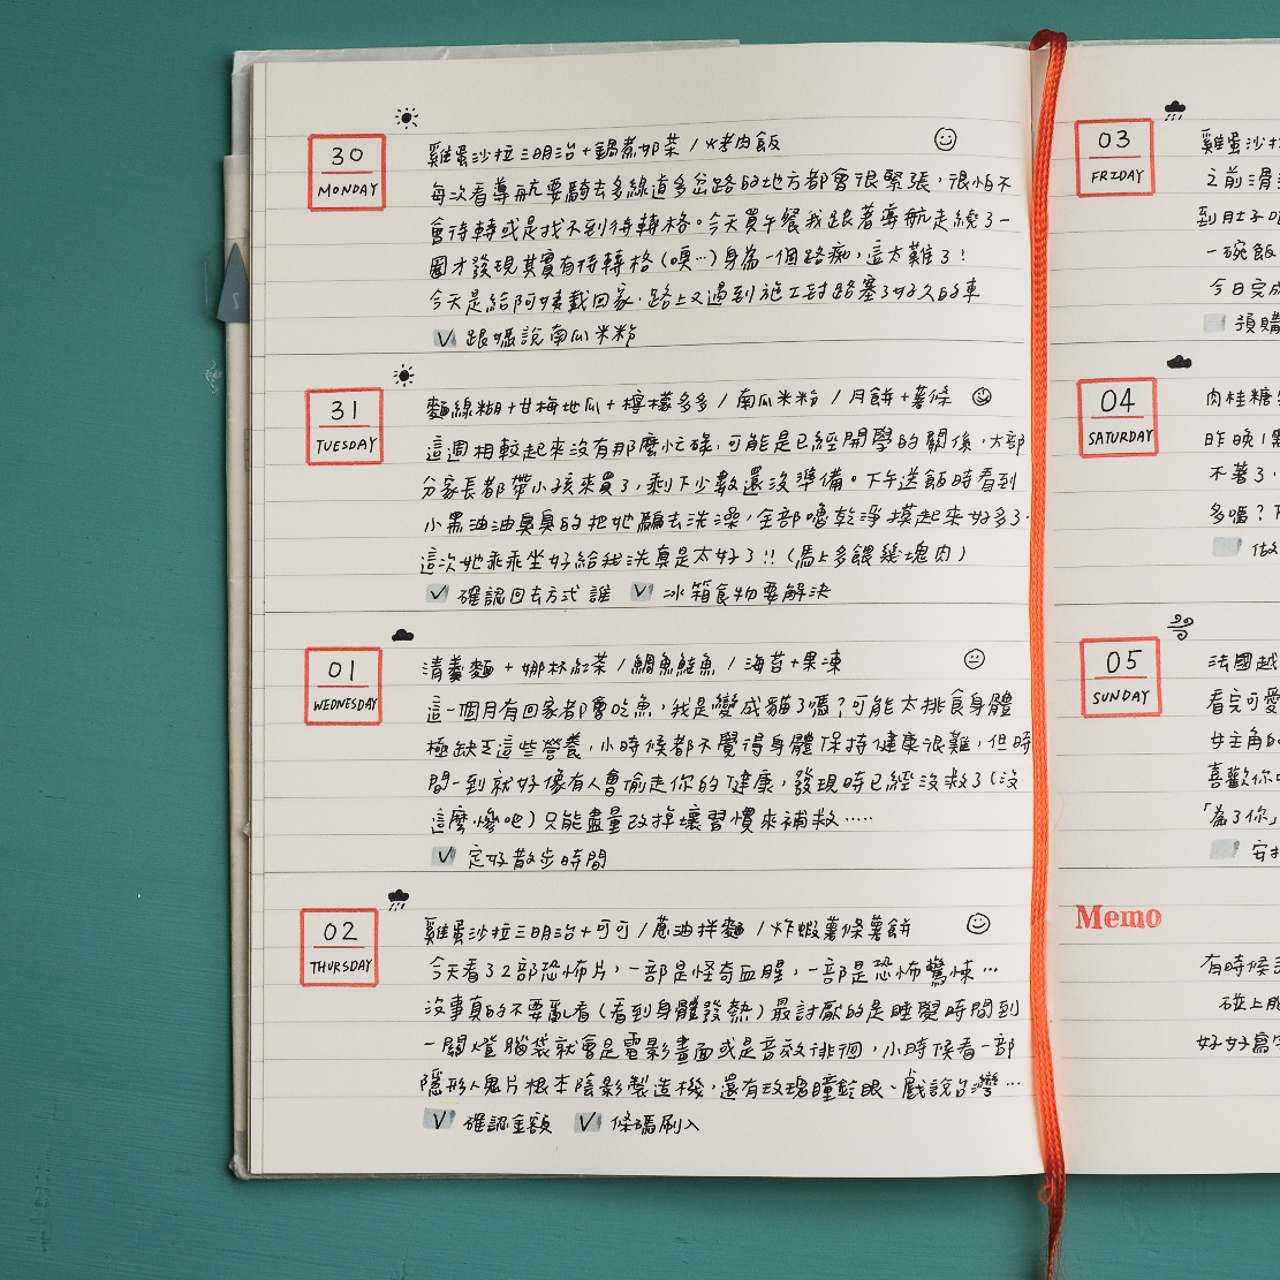 30
MONDAY
雞蛋沙拉三明治+鍋煮奶茶/火烤肉飯
每次看導航要騎去多線道多岔路的地方都會很緊張,很怕不
會待轉或是找不到待轉格。今天買午餐我跟著導航走繞了一
圈才發現其實有待轉格(嗅…)身為一個路痴,這太難了!
今天是給阿姨載回家,路上又遇到施工封路塞了好久的車
跟媽說南瓜米粉
31
TUESDAY
麵線糊+甘梅地瓜+檸檬多多/南瓜米粉/月餅+薯條
這週相較起來沒有那麼忙碌,可能是已經開學的關係,大部
分家長都帶小孩來買了,剩下少數還沒準備。下午送飯時看到
小黑油油臭臭的把她騙去洗澡,全部嚕乾淨摸起來好多了.
這次她乖乖坐好給我洗真是太好了!!(馬上多餵幾塊肉)
確認回去方式 誰 冰箱食物要解決
01
WEDNESDAY
清羹麵+娜杯紅茶/鯛魚鮭魚/海苔+果凍
這一個月有回家都會吃魚,我是變成貓了嗎?可能太挑食身體
極缺乏這些營養,小時候都不覺得身體保持健康很難,但時
間一到就好像有人會偷走你的健康,發現時已經沒救了(沒
這麼慘吧)只能盡量改掉壞習慣來補救……
定好散步時間
02
THURSDAY
雞蛋沙拉三明治+可可/蔥油拌麵/炸蝦薯條薯餅
今天看了2部恐怖片,一部是怪奇血腥,一部是恐怖驚悚…
沒事真的不要亂看(看到身體發熱)最討厭的是睡覺時間到
一關燈腦袋就會是電影畫面或是音效徘徊,小時候看一部
隱形人鬼片根本陰影製造機,還有玫瑰瞳鈴眼、戲說台灣…
確認金額 條碼刷入
03
FRIDAY
雞蛋沙拉
之前滑
到肚子
一碗飯
今日完成
預購
04
SATURDAY
肉桂糖
昨晚1點
不著了,
多嗎?
做
05
SUNDAY
法國越
看完可愛
女主角的
喜歡你
「為了你」
安
Memo
有時候
碰上
好好寫字